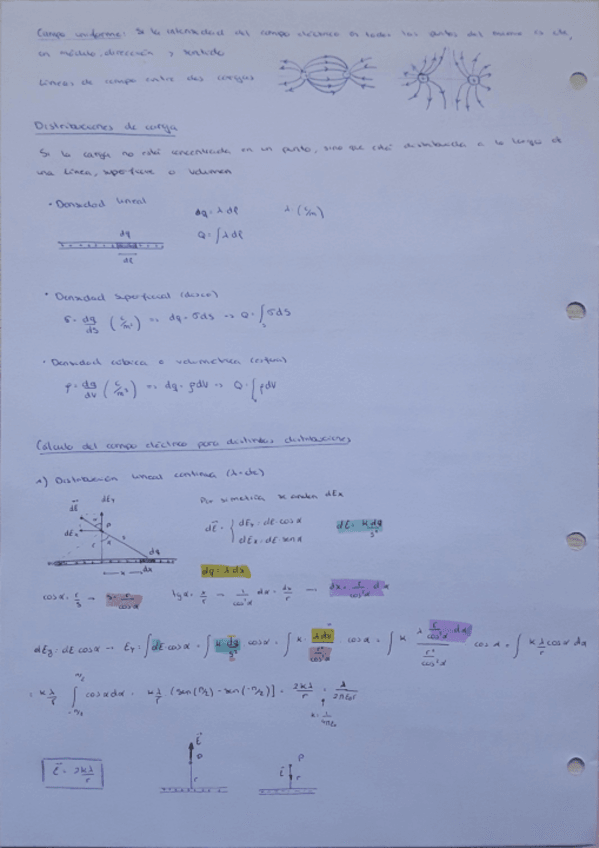 Campo uniforme: Si la intensidad del campo eléctrico en todos los puntos del mismo es cte,
en módulo, dirección y sentido
Líneas de campo entre dos cargas
Distribuciones de carga
Si la carga no está concentrada en un punto, sino que está distribuida a lo largo de
una línea, superficie o volumen
• Densidad lineal
dq = λ dl λ (C/m)
dq
Q = ∫ λ dl
dl
• Densidad superficial (disco)
σ = dq/dS (C/m²) => dq = σdS -> Q = ∫s σdS
• Densidad cúbica o volumétrica (esfera)
ρ = dq/dV (C/m³) => dq = ρdV -> Q = ∫ ρdV
Cálculo del campo eléctrico para distintas distribuciones
1) Distribución lineal continua (λ=cte)
Por simetría se anulan dEx
dE dEy
dEx P
dE = { dEy = dE cos α
dEx = dE sen α
dE = K dq/s²
r α s dq
x dx
dq = λ dx
cos α = r/s -> s = r/cos α tg α = x/r -> 1/cos²α dα = dx/r -> dx = r/cos²α dα
dEy = dE cos α -> Ey = ∫ dE cos α = ∫ K dq/s² cos α = ∫ K λdx/(r²/cos²α) cos α = ∫ K λ r/cos²α dα/(r²/cos²α) cos α = ∫ K λ/r cos α dα
= K λ/r ∫ -π/2 π/2 cos α dα = K λ/r (sen(π/2) - sen(-π/2)) = 2Kλ/r = λ/2πε₀r
K = 1/4πε₀
E = 2Kλ/r
E
P
r
P
E r